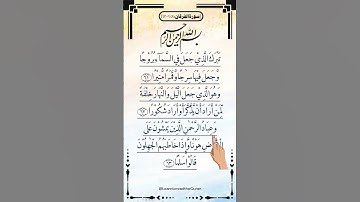 سورة الفرقان
بسم الله الرحمن الرحيم
تَبٰرَكَ الَّذِي جَعَلَ فِي السَّمَآءِ بُرُوجًا
وَّجَعَلَ فِيهَا سِرٰجًا وَّقَمَرًا مُّنِيرًا ﴿٦١﴾
وَهُوَ الَّذِي جَعَلَ الَّيْلَ وَالنَّهَارَ خِلْفَةً
لِّمَنْ أَرَادَ أَنْ يَّذَّكَّرَ أَوْ أَرَادَ شُكُورًا ﴿٦٢﴾
وَعِبَادُ الرَّحْمٰنِ الَّذِينَ يَمْشُونَ عَلَى
هَوْنًا وَّإِذَا خَاطَبَهُمُ الْجٰهِلُونَ
قَالُوا سَلٰمًا ﴿٦٣﴾